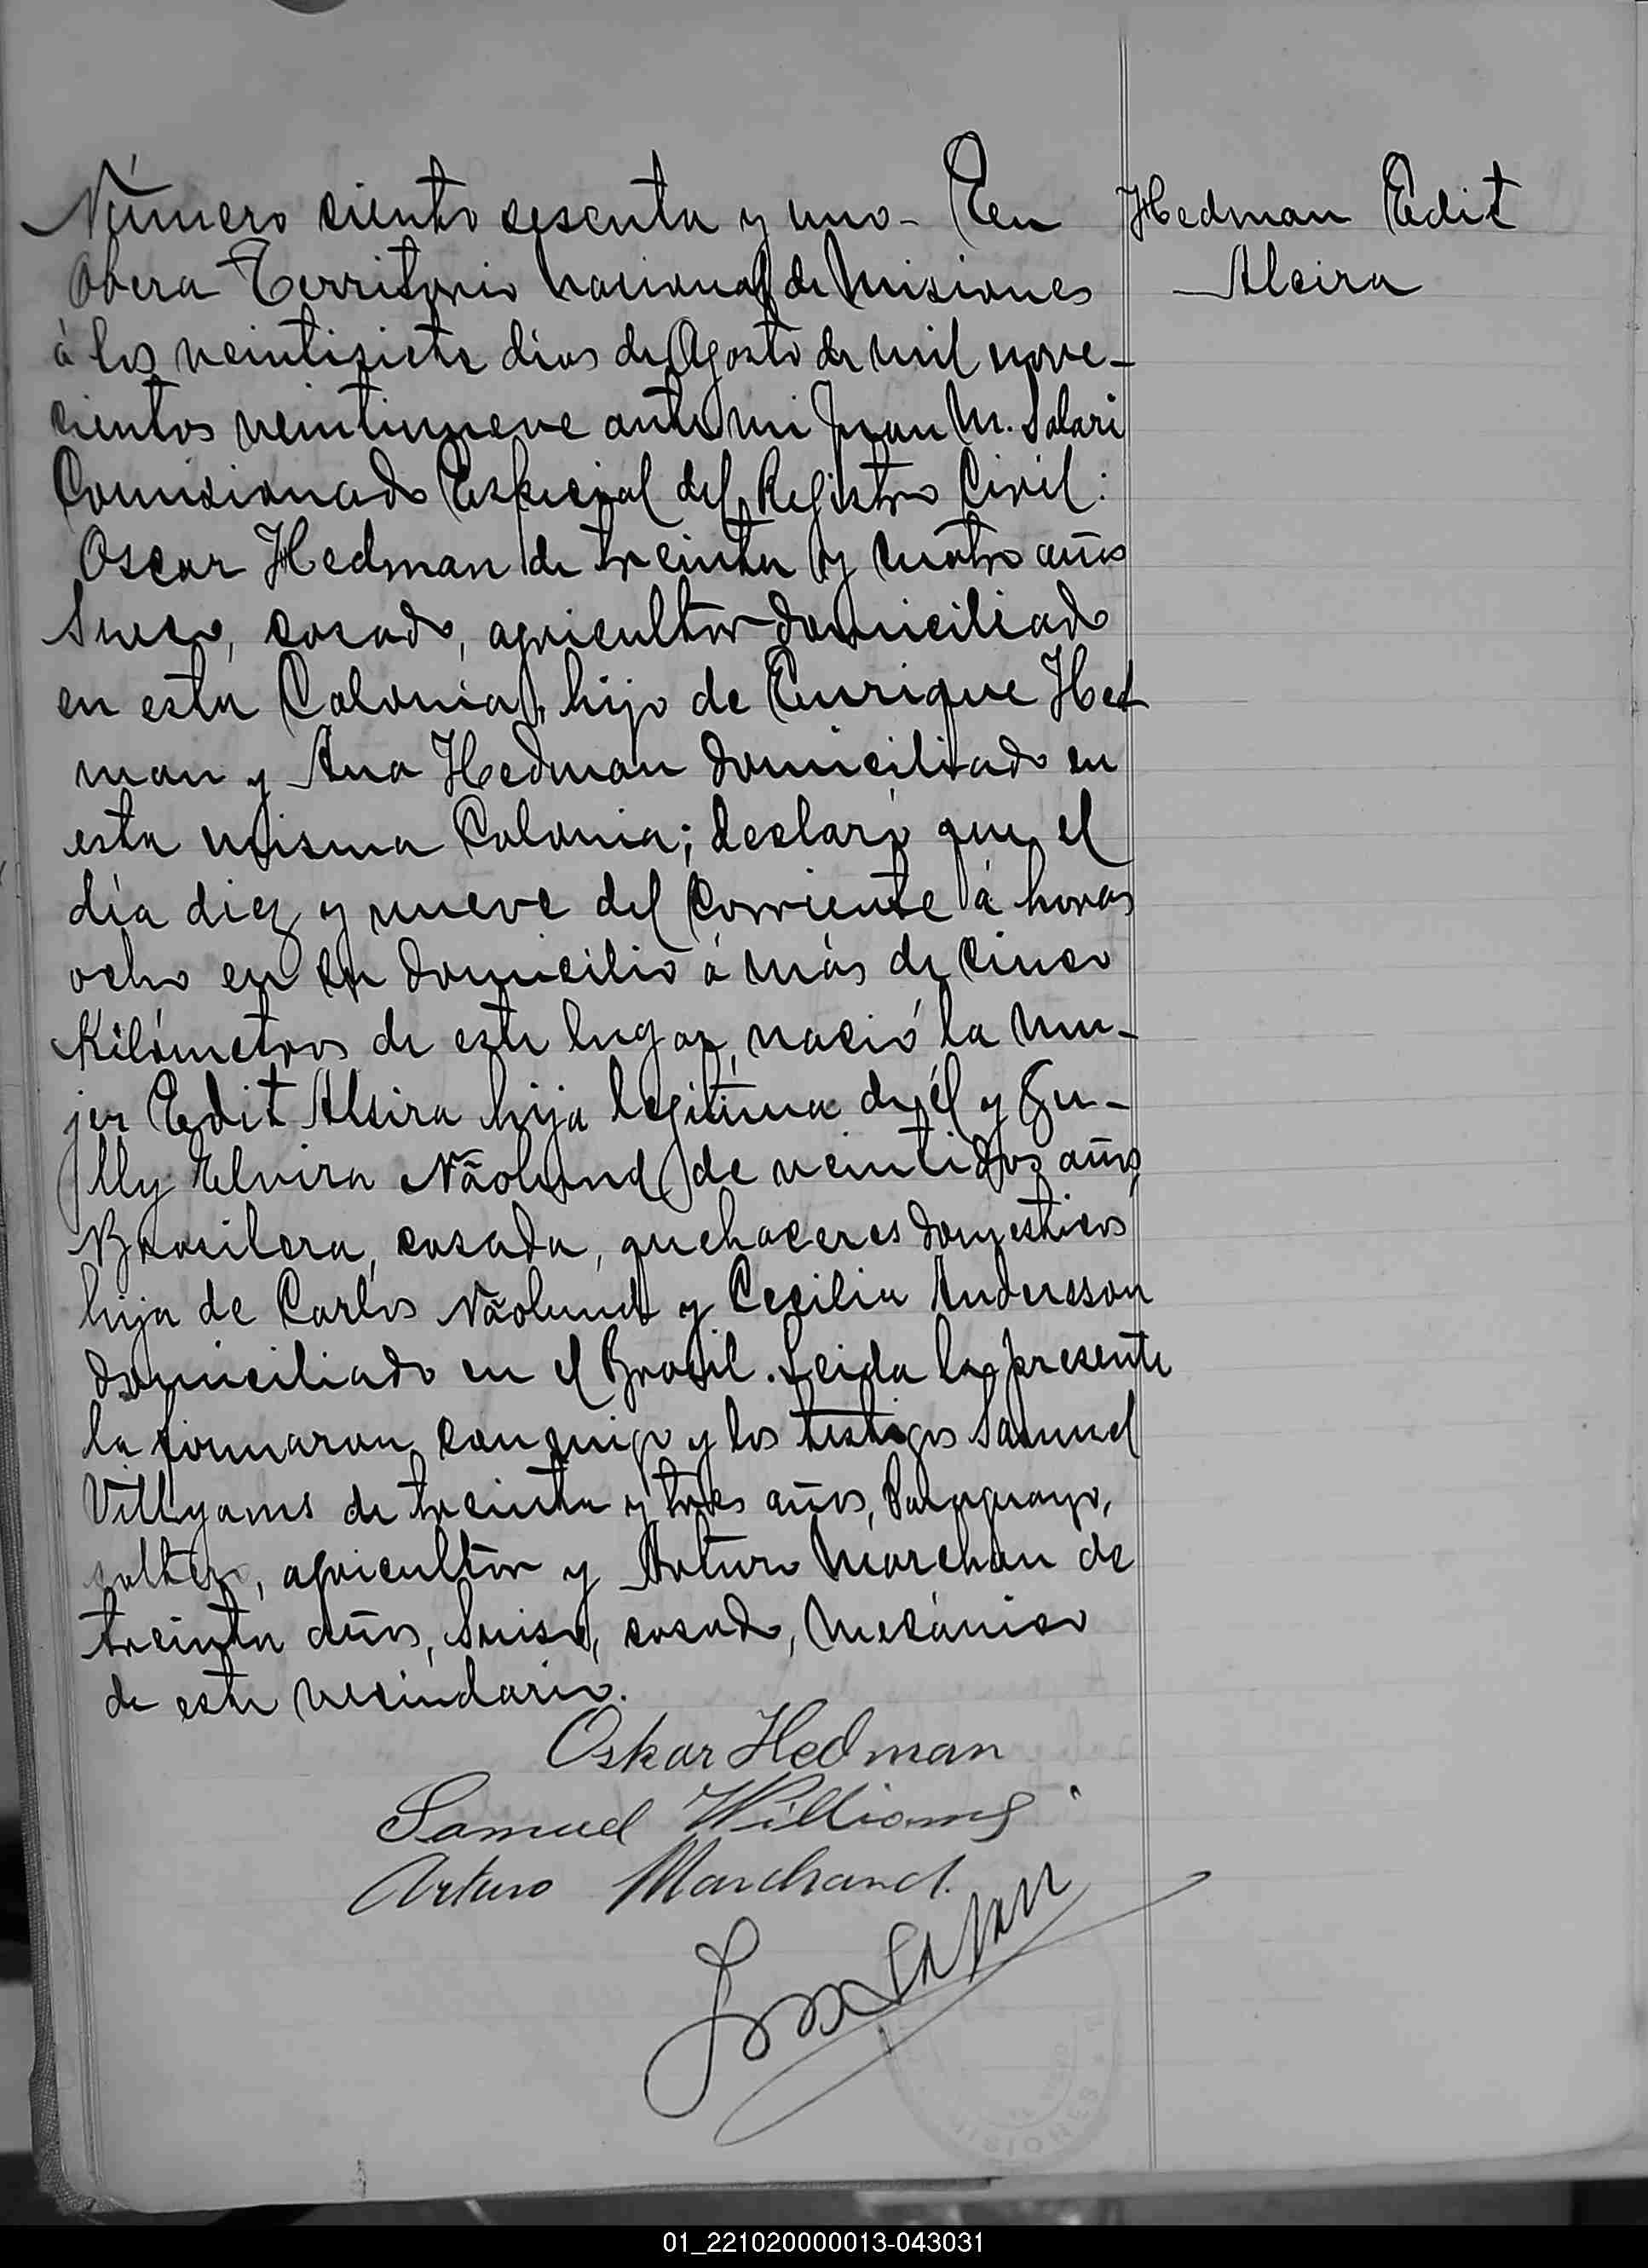 Número ciento sesenta y uno- En
Hedman Edit
Alcira
Obera Territorio Nacional de Misiones
á los veintisiete dias de Agosto de mil nove-
cientos veintinueve ante mi Juan M. Salari
Comisionado Especial del Registro Civil:
Oscar Hedman de treinta y cuatro años
Sueco, casado, agricultor domiciliado
en esta Colonia, hijo de Enrique Hed
man y Ana Hedman domiciliado en
esta misma Colonia; declaró que el
día diez y nueve del corriente á horas
ocho en su domicilio á más de cinco
Kilómetros de este lugar, nació la mu-
jer Edit Alsira hija legitima de él y
lly Elvira Nãolund de veintidos años
Brasilera, casada, quehaceres domesticos
hija de Carlos Nãolund y Cecilia Andersson
domiciliado en el Brasil. Leida la presente
la firmaron conmigo y los testigos Samuel
Villyams de treinta y tres años, Paraguayo,
soltero, agricultor y Arturo Marchan de
treinta años, Suiso, casado, Mecánico
de este vecindario.
Oskar Hedman
Samuel Williams
Arturo Marchand.
MISIONES
01_221020000013-043031